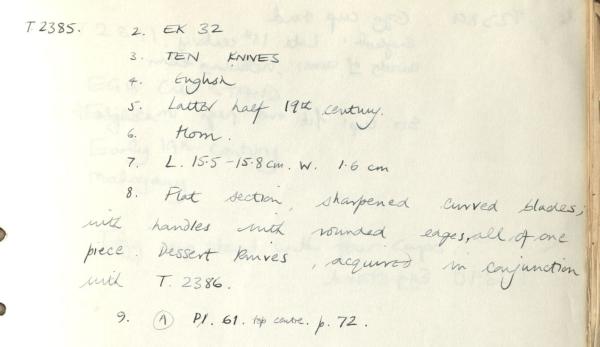 T.2385. 2. EK 32
3. TEN KNIVES
4. English
5. Latter half 19th century.
6. Horn.
7. L. 15.5-15.8cm. W. 1.6 cm
8. Flat section, sharpened curved blades;
with handles with rounded edges, all of one
piece. Dessert knives, acquired in conjunction
with T. 2386.
9. (A) Pl. 61. top centre. p. 72.